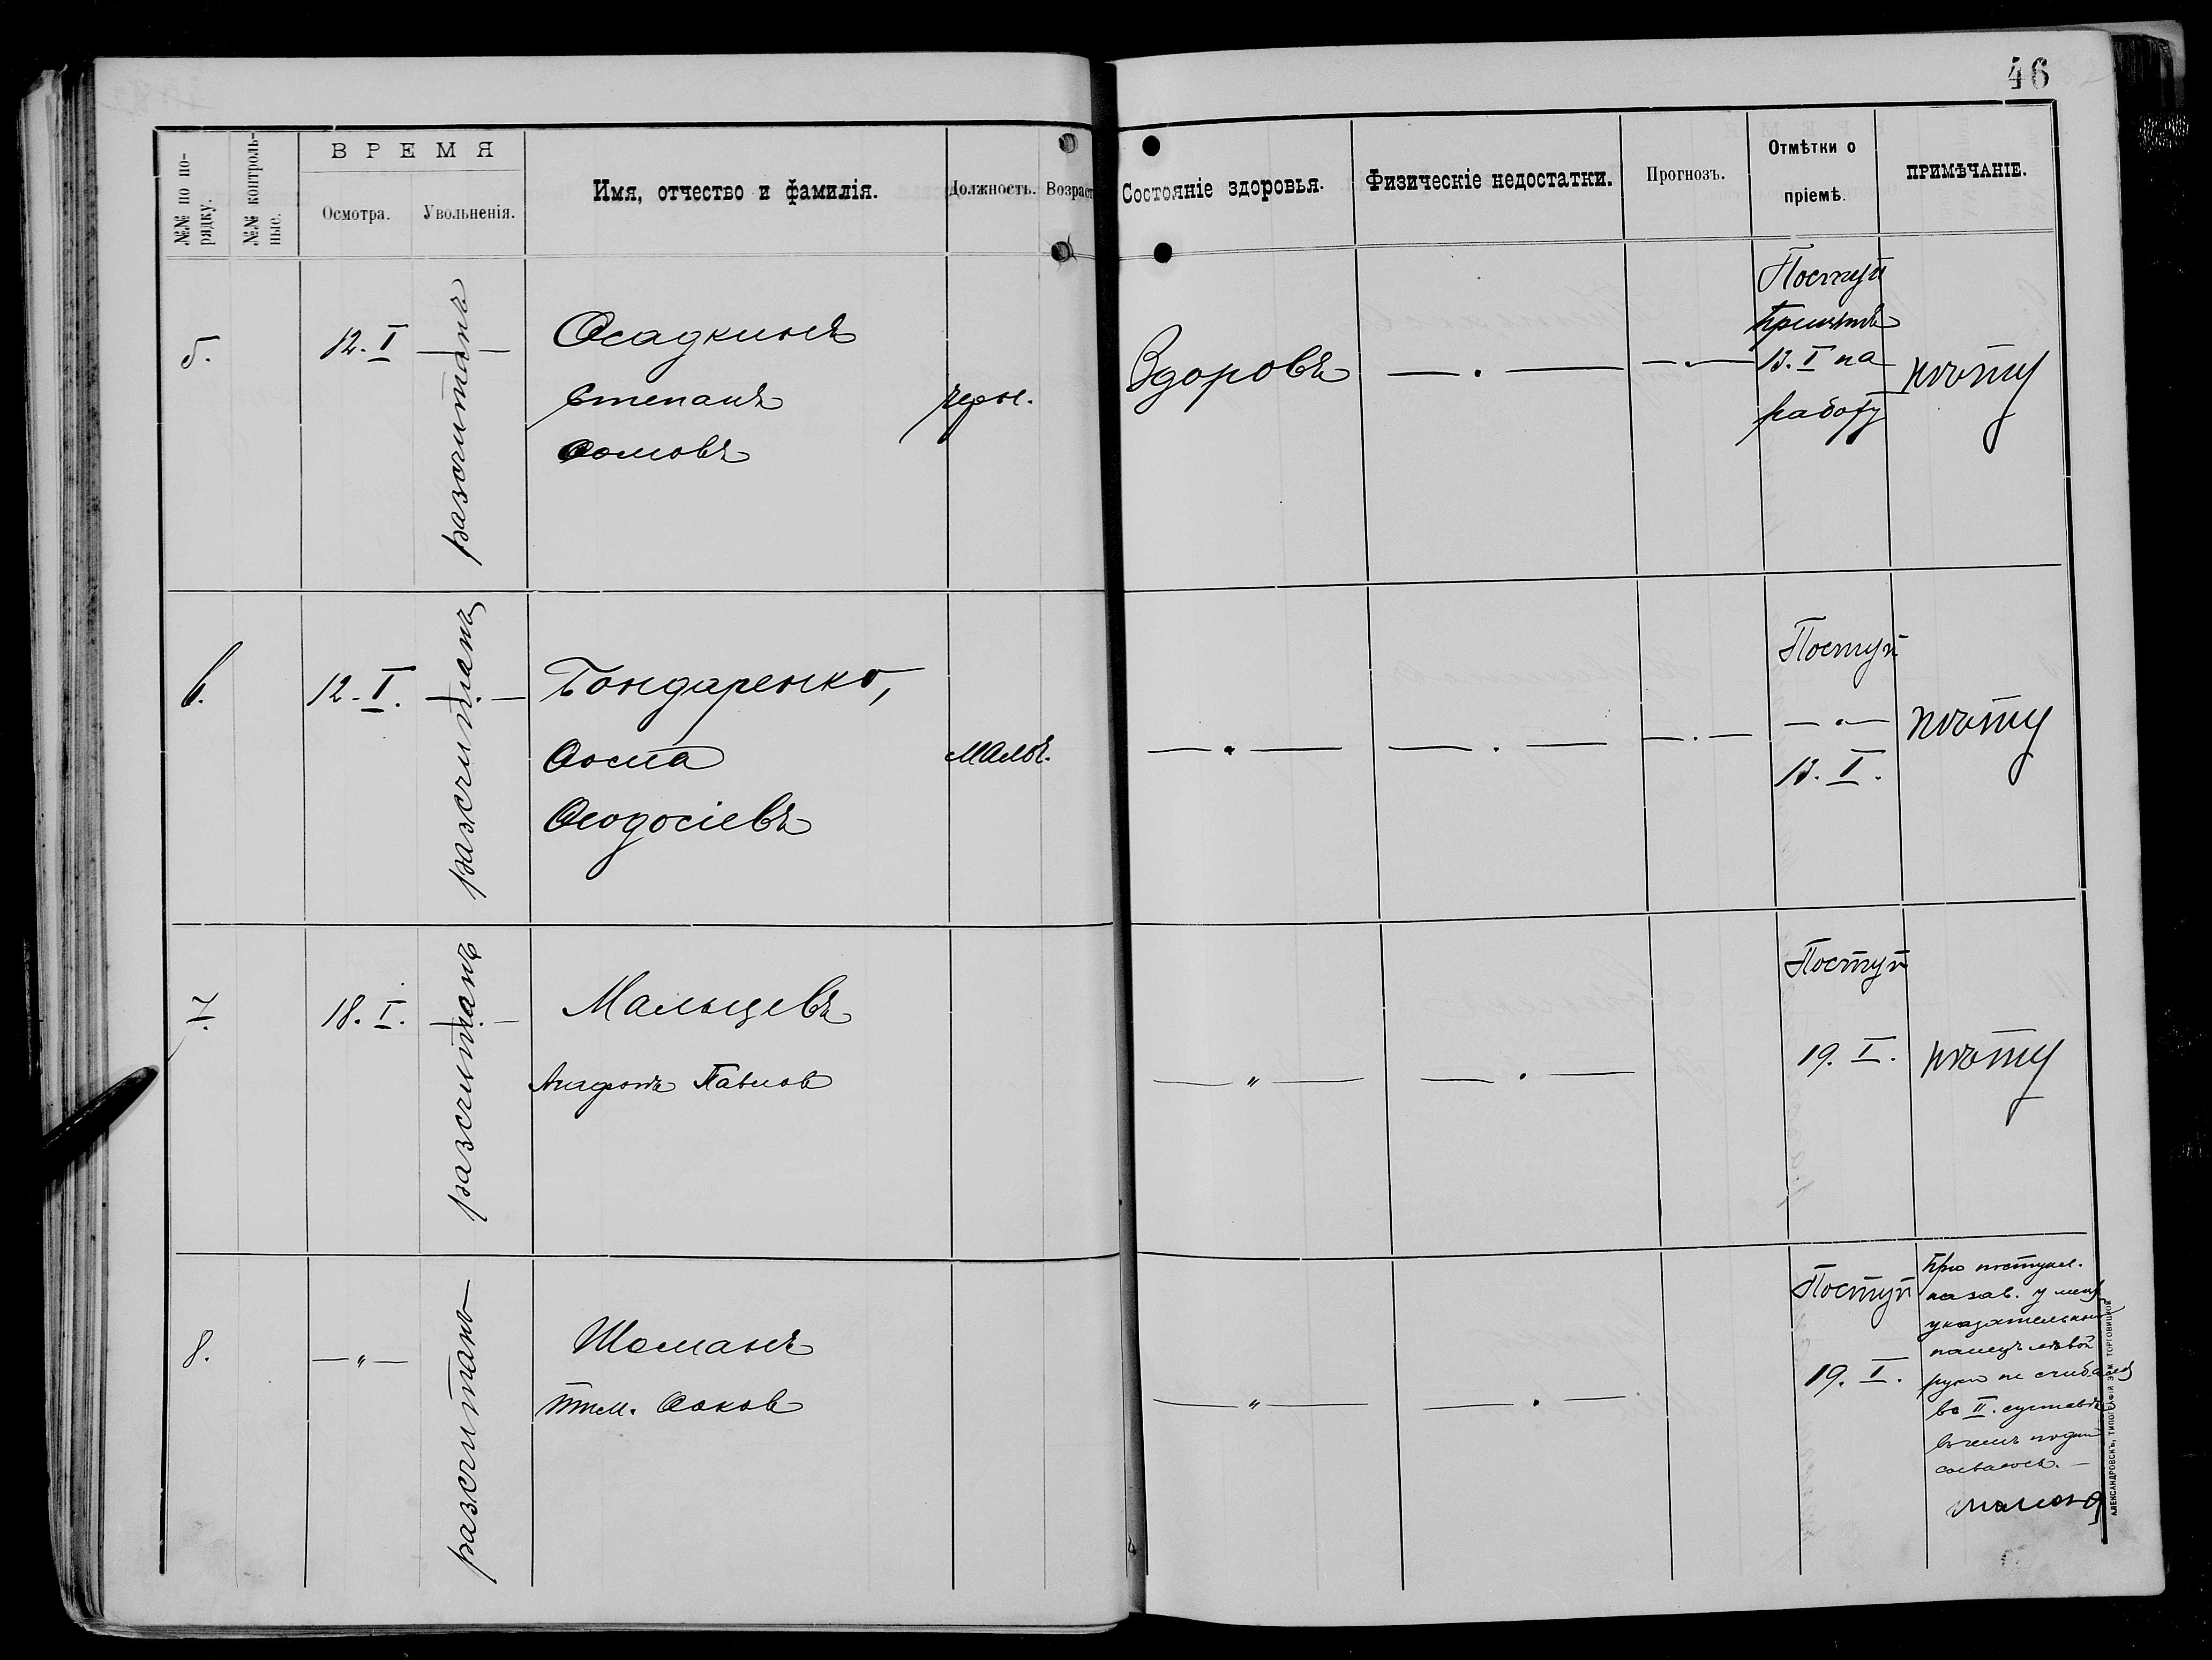 46
№№ по по-
рядку.
№№ контроль-
ные.
ВРЕМЯ
Осмотра.
Увольненія.
Имя, отчество и фамилія.
Должность.
Возраст
Состояніе здоровья.
Физическіе недостатки.
Прогнозъ.
Отмѣтки о
пріемѣ.
ПРИМѢЧАНІЕ.
5.
12. I
—
разсчитанъ
Осадкинъ
Степанъ
черн.
Здоровъ
— . —
— . —
Поступ
Принятъ
13. I на
работу
6.
12. I.
—
разсчитанъ
Бондаренко,
Ѳома
Ѳеодосіевъ
— . —
— . —
— . —
Поступ
— . —
13. I.
7.
18. I.
—
разсчитанъ
Мальцевъ
Павлов
— " —
— . —
Поступ
19. I.
8.
— " —
разсчитанъ
Шаманъ
— " —
— . —
Поступ
19. I.
При поступл.
указательный
палецъ лѣвой
руки не сгиб
въ II. суставѣ
АЛЕКСАНДРОВСКЪ, ТИПОГРАФІЯ ТОРГОВИЦКОЙ